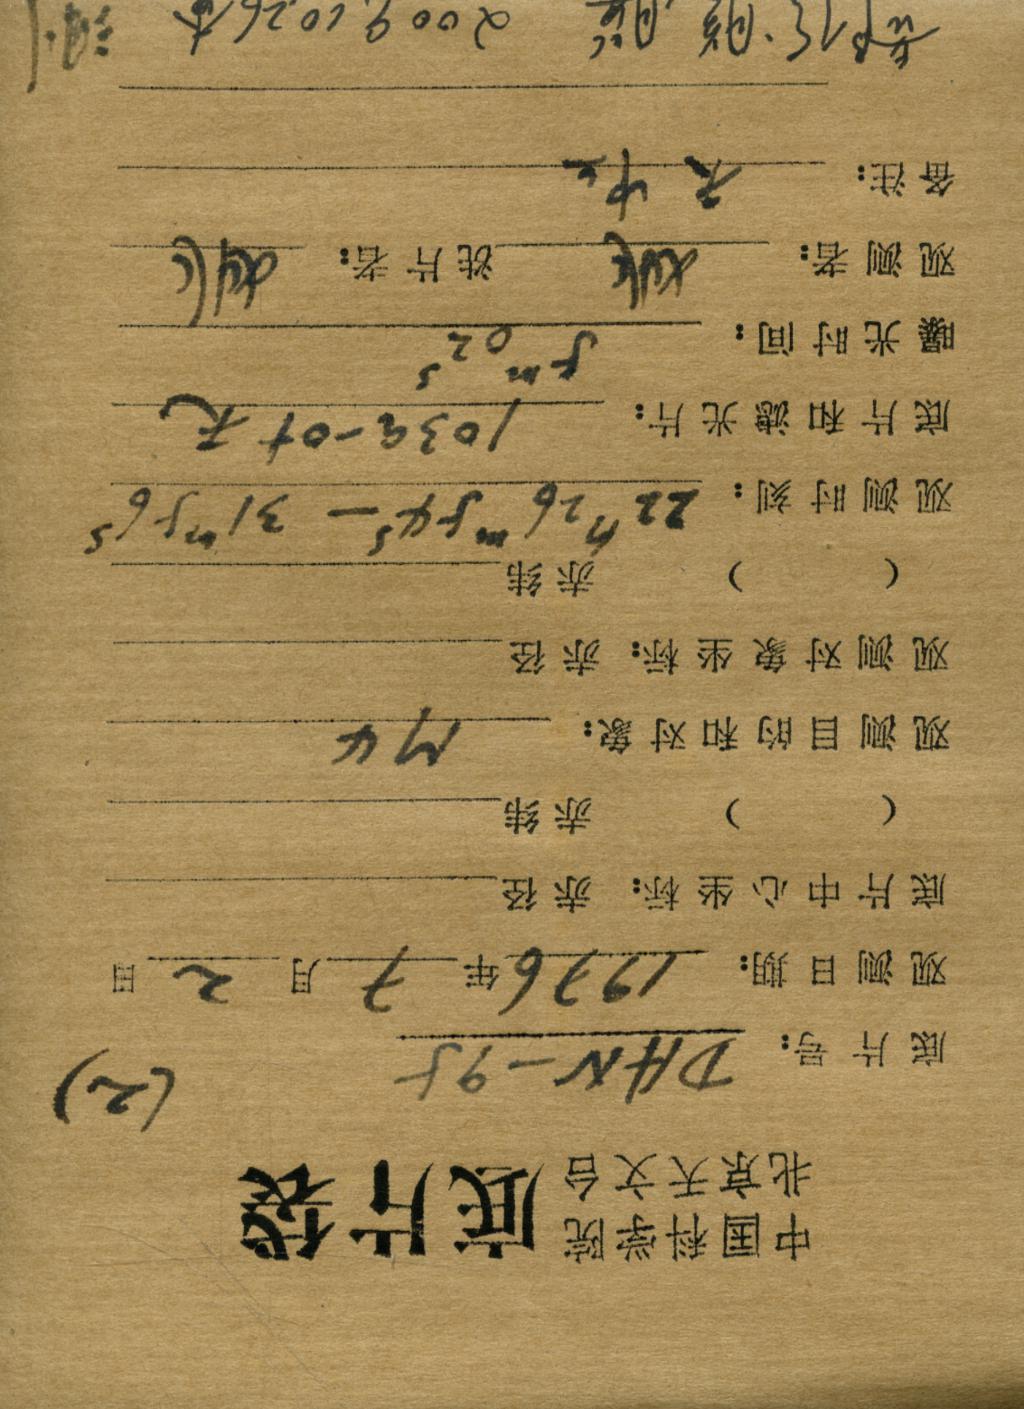 中国科学院
北京天文台 底片袋
(2)
底片号: DHN-95
观测日期: 1976年7月2日
底片中心坐标: 赤径
( ) 赤纬
观测目的和对象: M4
观测对象坐标: 赤径
( ) 赤纬
观测时刻: 22h26m54s — 31m56s
底片和滤光片: 103a-O+无
曝光时间: 5m02s
观测者: 洗片者:
备注:
2009.10.26